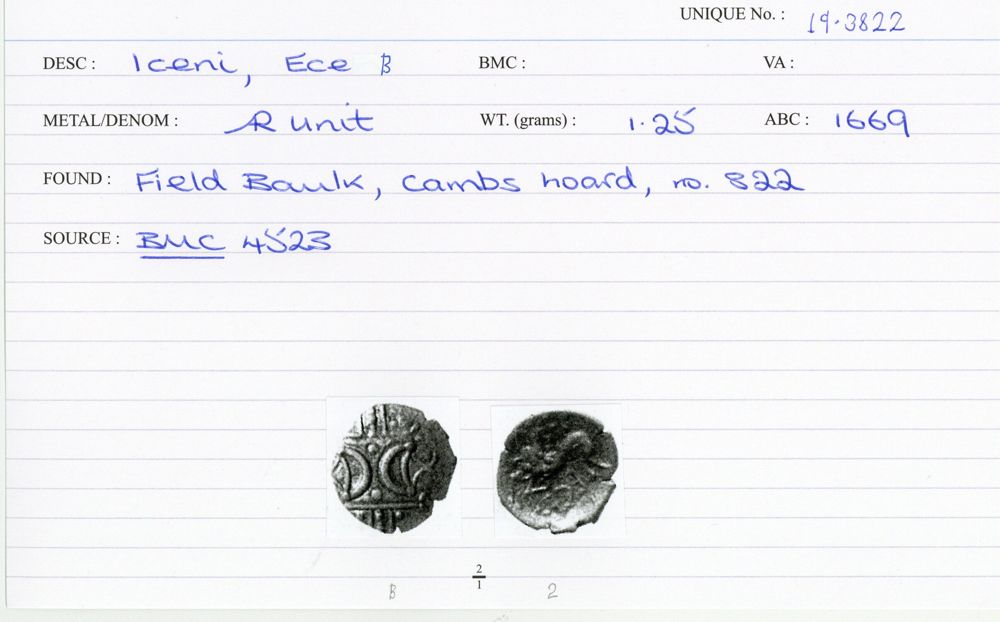 UNIQUE No. : 19.3822
DESC : Iceni, Ece B BMC : VA :
METAL/DENOM : AR unit WT. (grams) : 1.25 ABC : 1669
FOUND : Field Baulk, Cambs hoard, no. 822
SOURCE : BMC 4523
2
1
B 2